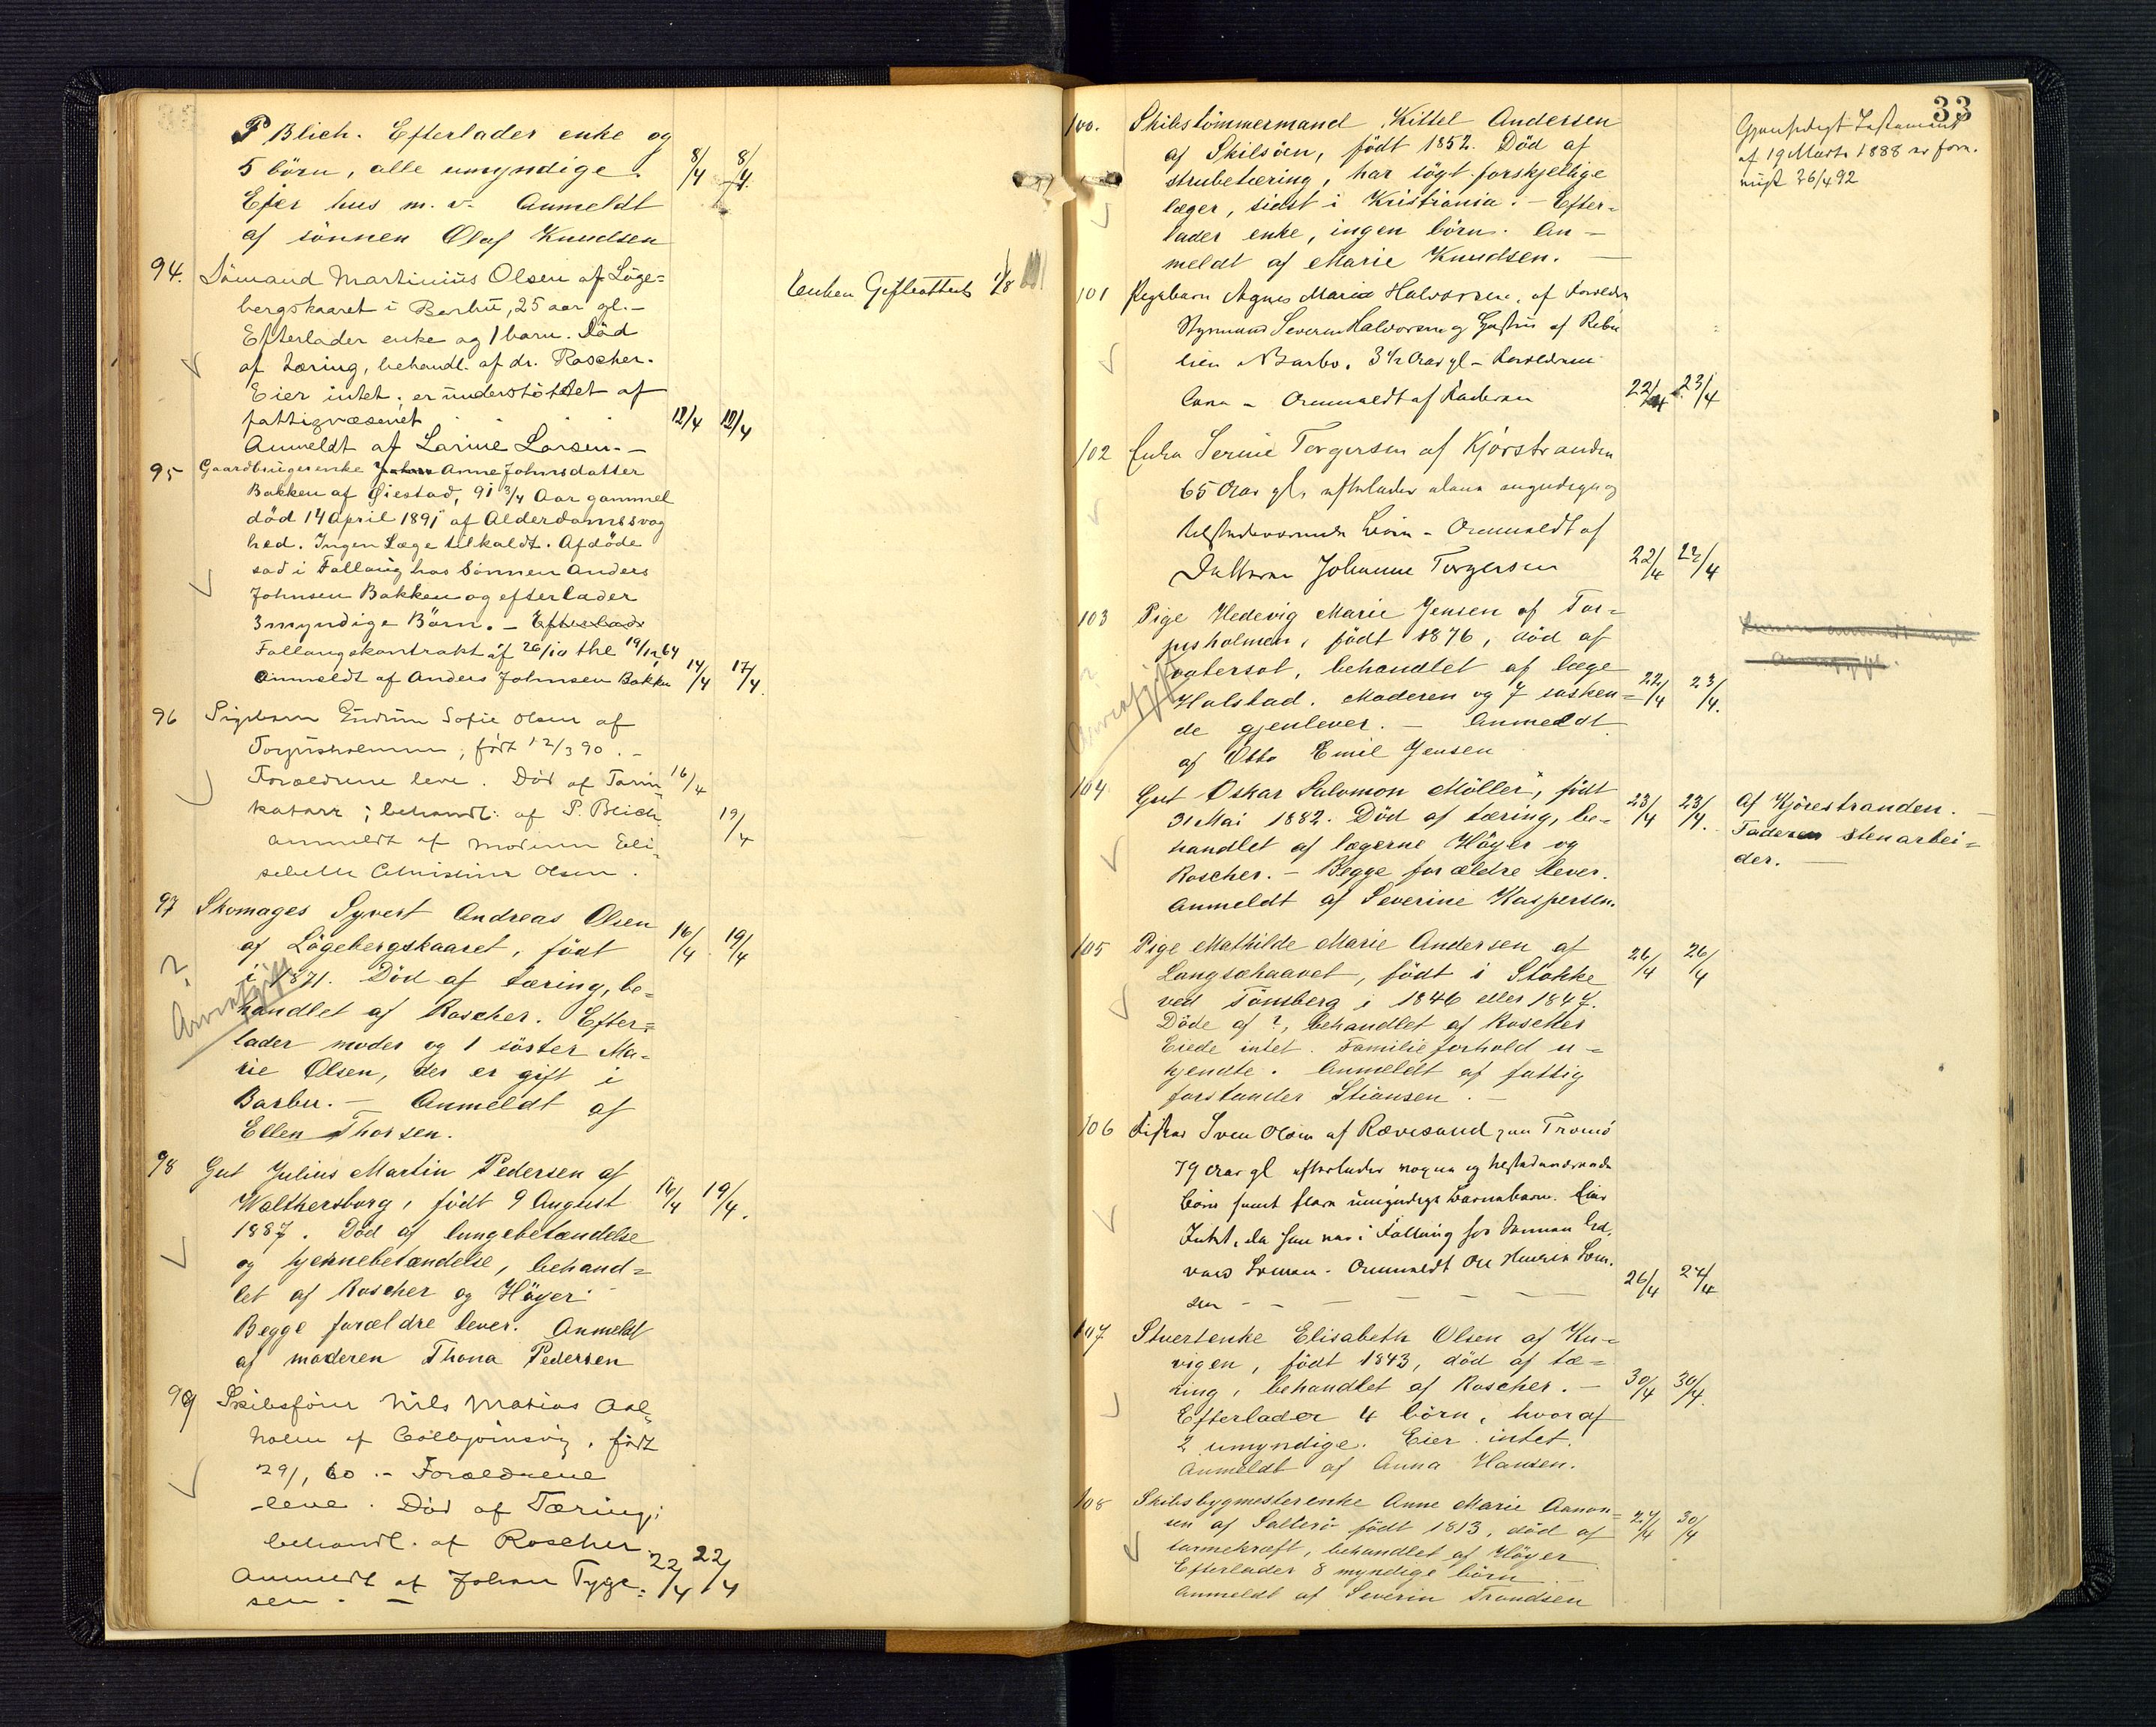 P Blich. Efterlader enke og
5 börn, alle umyndige. 8/4 8/4.
Ejer hus m. v. Anmeldt
af sönnen Olaf Knudsen
94. Sömand Martinius Olsen af Löge=
bergskaaret i Barbu, 25 aar gl. –
Efterlader enke og 1 barn. Död
af tæring, behandl. af dr. Roscher.
Eier intet; er understöttet af
fattigvæsenet 12/4 12/4
Anmeldt af Larine Larsen. –
Enken Gifteattest 1/8
95 Gaardbrugerenke Anne Johnsdatter
Bakken af Øiestad, 91 3/4 Aar gammel
död 14 April 1891 af Alderdomssvag
hed. Ingen Læge tilkaldt. Afdöde
sad i Follaug hos Sönnen Anders
Johnsen Bakken og efterlader
3 myndige Börn. – Efterlader
Follaugskontrakt af 26/10 thl 19/12 64
Anmeldt af Anders Johnsen Bakken 14/4 17/4.
96 Pigebarn Sofie Olsen af
Torjusholmen, födt 12/3 90. –
Forældrene leve. Död af Tarm 16/4
katarr; behandl: af P. Blich 19/4
anmeldt af moderen Eli=
sabeth Christine Olsen.
97 Skomager Syvert Andreas Olsen
af Lögebergskaaret, födt 16/4 19/4
i 1871. Död af tæring, be=
handlet af Roscher. Efter=
lader moder og 1 söster Ma=
rie Olsen, der er gift i
Barbu. – Anmeldt af
Ellen Thorsen.
?
Arveafgift
98 Gut Julius Martin Pedersen af
Walthersborg, födt 9 August 16/4 19/4.
1887. Död af lungebetændelse
og hjernebetændelse, behand=
let af Roscher og Höyer
Begge forældre lever. Anmeldt
af moderen Thona Pedersen
99 Skibsförer Nils Matias Aal=
holm af Colbjörnsvig, födt
29/1 60. – Forældrene
leve. Död af Tæring;
behandl. af Roscher
Anmeldt af Johan Tyge= 22/4 22/4
sen. –
33
100. Skibstömmermand Kittel Andersen
af Skilsöen, födt 1852. Död af
strubetæring, har sögt forskjellige
læger, sidst i Kristiania. – Efter=
lader enke, ingen börn. An=
meldt af Marie Knudsen. –
Gjensidigt Testament
af 19 Marts 1888 er frem.
vist 26/4 92
101 Pigebarn Agnes Marie Halvorsen, af Forældre
Styrmand Severin Halvorsen og Hustru af
lien Barbo. 3 1/2 Aar gl – Forældrene
leve – Anmeldt af Faderen 22/4 23/4
102 Enke Serine Torgersen af Kjörstranden
65 Aar gl, efterlader alene myndige og
tilstedeværende Börn – Anmeldt af
Datteren Johanne Torgersen 22/4 22/4
103 Pige Hedevig Marie Jensen af Tor=
jusholmen, födt 1876, död af
vatersot, behandlet af læge
Halstad. Moderen og 7 sösken= 22/4 23/4.
de gjenlever. – Anmeldt
af Otto Emil Jensen
Arveafgift
104. Gut Oskar Salomon Möller, födt
31 Mai 1882. Död af tæring, be= 23/4 23/4.
handlet af lægerne Höyer og
Roscher. – Begge forældre lever.
Anmeldt af Severine Kaspersen.
Af Kjörestranden. –
Faderen stenarbei=
der. –
105 Pige Mathilde Marie Andersen af
Langsæhaavet, födt i Stokke 26/4 26/4
ved Tönsberg i 1846 eller 1847.
Döde af ?, behandlet af Roscher
Eiede intet. Familieforhold u=
kjendte. Anmeldt af fattig
forstander Stiansen. –
106 Fisker Sven Olsen af Rævesand paa Tromö
79 Aar gl efterlader myndige og tilstedeværende
Börn samt flere umyndige Barnebörn. Eier
Intet, da han var i Follaug hos Sönnen
Svensen. Anmeldt Ole Svend=
sen – – – – – 26/4 27/4
107 Stuertenke Elisabeth Olsen af Ku=
vigen, födt 1843, död af tæ=
ring, behandlet af Roscher. – 30/4 30/4.
Efterlader 4 börn, hvoraf
2 umyndige. Eier intet.
Anmeldt af Anna Hansen.
108 Skibsbygmesterenke Anne Marie Aanon=
sen af Salterö födt 1813, död af 27/4 30/4
tarmekræft, behandlet af Höyer
Efterlader 8 myndige börn –
Anmeldt af Severin Trondsen